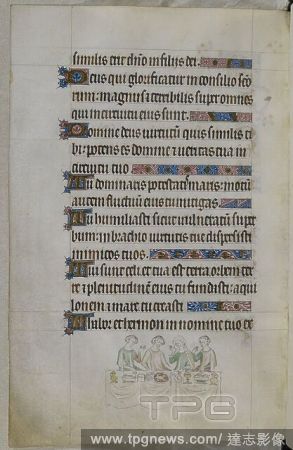 similis erit d̄no in filijs dei.
Deus qui glorificatur in consilio sc̄o
rum: magnus ⁊ terribilis super omnes
qui in circuitu eius sunt.
Domine deus uirtutum quis similis ti
bi: potens es domine ⁊ ueritas tua in
circuitu tuo
Tu dominaris potestati maris: motū
autem fluctuū eius tu mitigas.
Tu humiliasti sicut uulneratū super
bum: in brachio uirtutis tue dispersisti
inimicos tuos.
Tui sunt celi et tua est terra orbem ter
re ⁊ plenitudinē eius tu fundasti: aqui
lonem ⁊ mare tu creasti
Thabor et hermon in nomine tuo ex
TPG
www.tpgnews.com / 達志影像